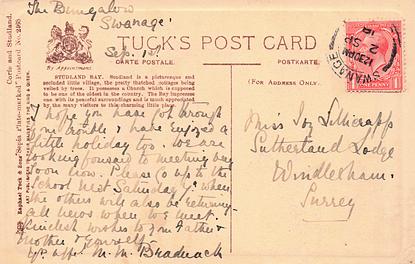 The Bungalow
Swanage
Sep. 1st
TUCK'S POST CARD
CARTE POSTALE.
POSTKARTE.
By Appointment.
(FOR ADDRESS ONLY.)
STUDLAND BAY. Studland is a picturesque and
secluded little village, the pretty thatched cottages being
veiled by trees. It possesses a Church which is supposed
to be one of the oldest in the country. The Bay impresses
one with its peaceful surroundings and is much appreciated
by the many visitors to this charming little place.
Corfe and Studland.
Raphael Tuck & Sons'
Postcard No.
I hope you have got through
your trouble & have enjoyed a
little holiday too. We are
looking forward to meeting you
soon now. Please go up to the
school next Saturday when
the others will also be returning
all news when we meet.
Kindest wishes to your Father &
Mother & yourself
Yr. affec. M. M. Bradnack
Miss Joy
Sutherland Lodge
Windlesham.
Surrey
SWANAGE
12.30PM
2 SP
15